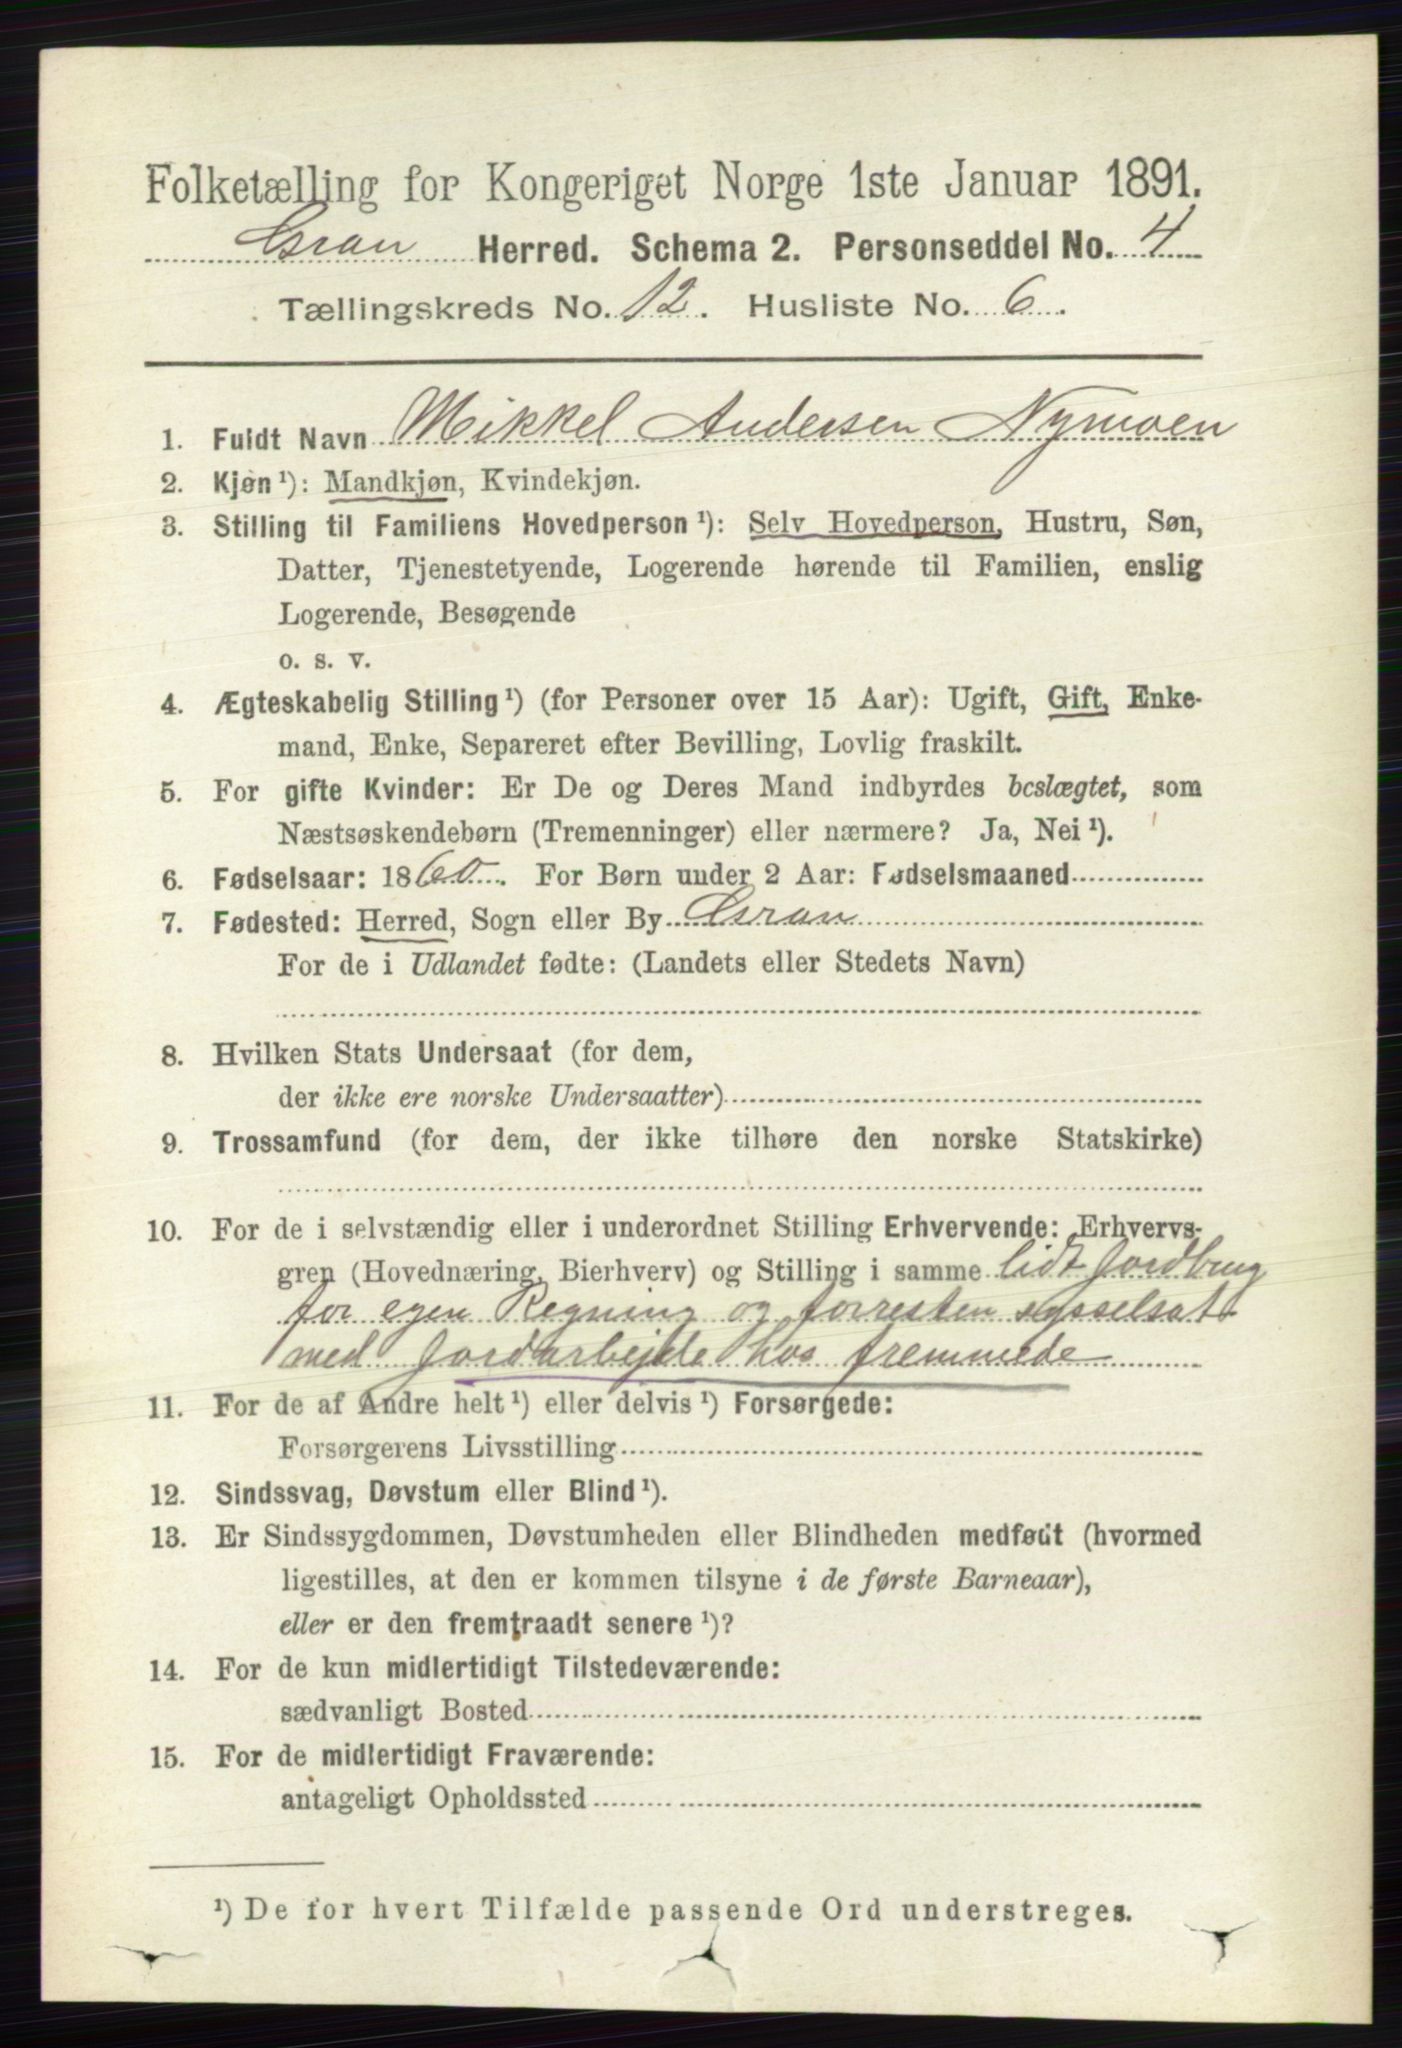 Folketælling for Kongeriget Norge 1ste Januar 1891.
Gran Herred. Schema 2. Personseddel No. 4
Tællingskreds No. 12. Husliste No. 6.
1. Fuldt Navn Mikkel Andersen Nymoen
2. Kjøn¹): Mandkjøn, Kvindekjøn.
3. Stilling til Familiens Hovedperson¹): Selv Hovedperson, Hustru, Søn,
Datter, Tjenestetyende, Logerende hørende til Familien, enslig
Logerende, Besøgende
o. s. v.
4. Ægteskabelig Stilling¹) (for Personer over 15 Aar): Ugift, Gift, Enke-
mand, Enke, Separeret efter Bevilling, Lovlig fraskilt.
5. For gifte Kvinder: Er De og Deres Mand indbyrdes beslægtet, som
Næstsøskendebørn (Tremenninger) eller nærmere? Ja, Nei¹).
6. Fødselsaar: 1860. For Børn under 2 Aar: Fødselsmaaned
7. Fødested: Herred, Sogn eller By Gran
For de i Udlandet fødte: (Landets eller Stedets Navn)
8. Hvilken Stats Undersaat (for dem,
der ikke ere norske Undersaatter)
9. Trossamfund (for dem, der ikke tilhøre den norske Statskirke)
10. For de i selvstændig eller i underordnet Stilling Erhvervende: Erhvervs-
gren (Hovednæring, Bierhverv) og Stilling i samme lidt Jordbrug
for egen Regning og forresten sysselsat
med Jordarbejde hos fremmede
11. For de af Andre helt¹) eller delvis¹) Forsørgede:
Forsørgerens Livsstilling
12. Sindssvag, Døvstum eller Blind¹).
13. Er Sindssygdommen, Døvstumheden eller Blindheden medfødt (hvormed
ligestilles, at den er kommen tilsyne i de første Barneaar),
eller er den fremtraadt senere¹)?
14. For de kun midlertidigt Tilstedeværende:
sædvanligt Bosted
15. For de midlertidigt Fraværende:
antageligt Opholdssted
¹) De for hvert Tilfælde passende Ord understreges.